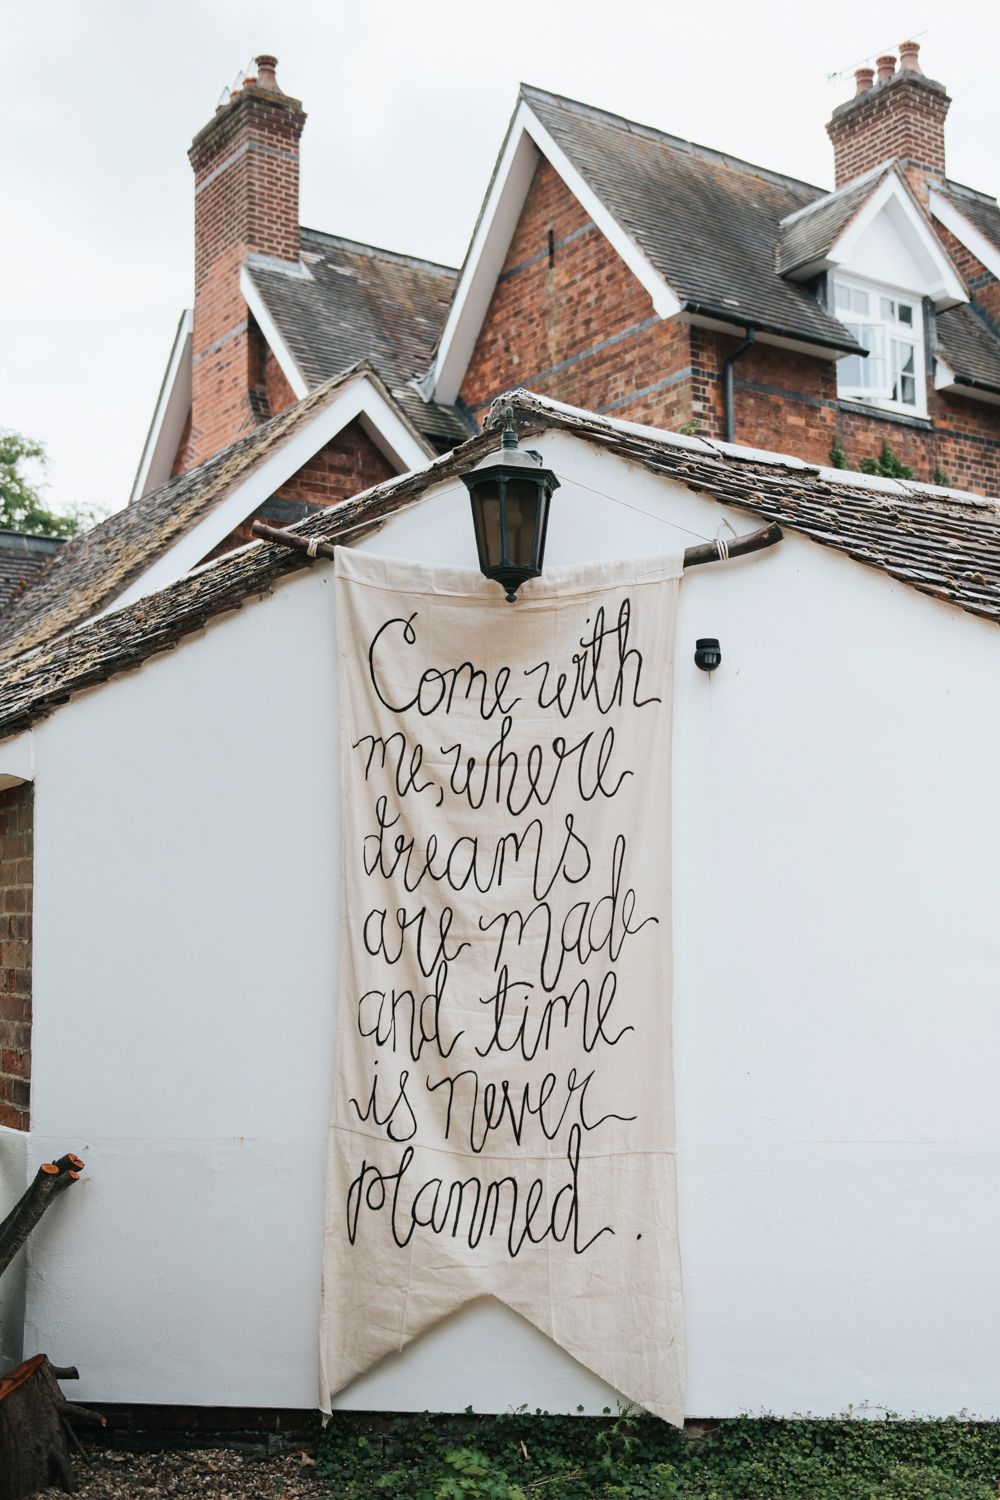 Come with
me, where
dreams
are made
and time
is never
planned.